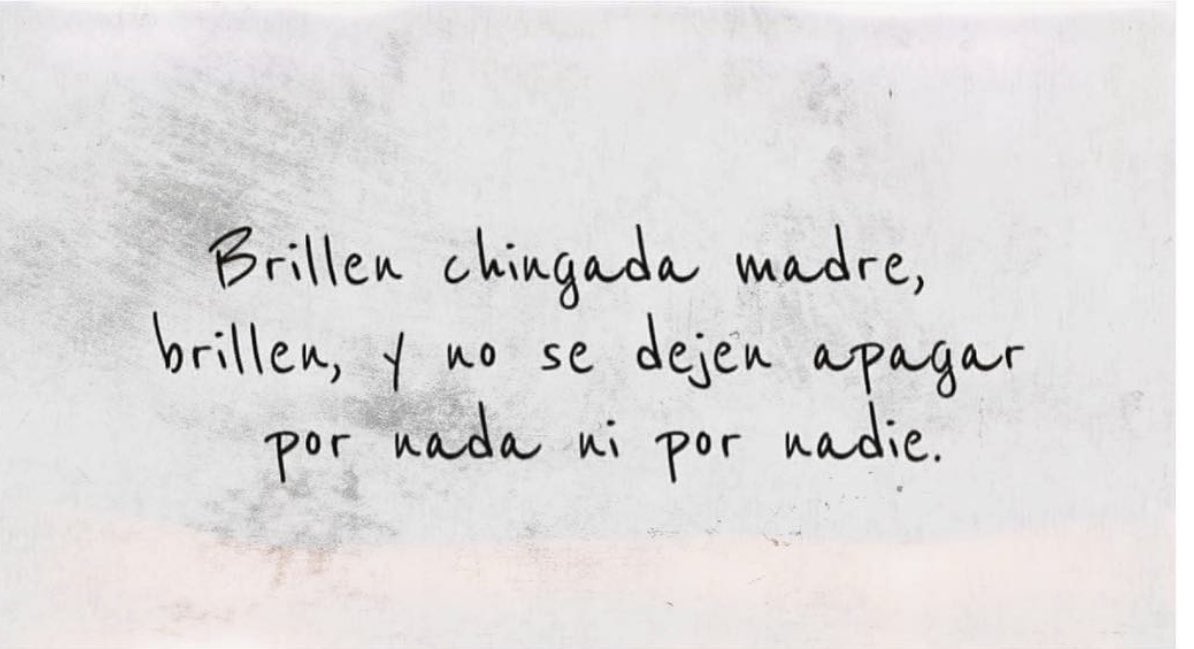 Brillen chingada madre,
brillen, y no se dejen apagar
por nada ni por nadie.